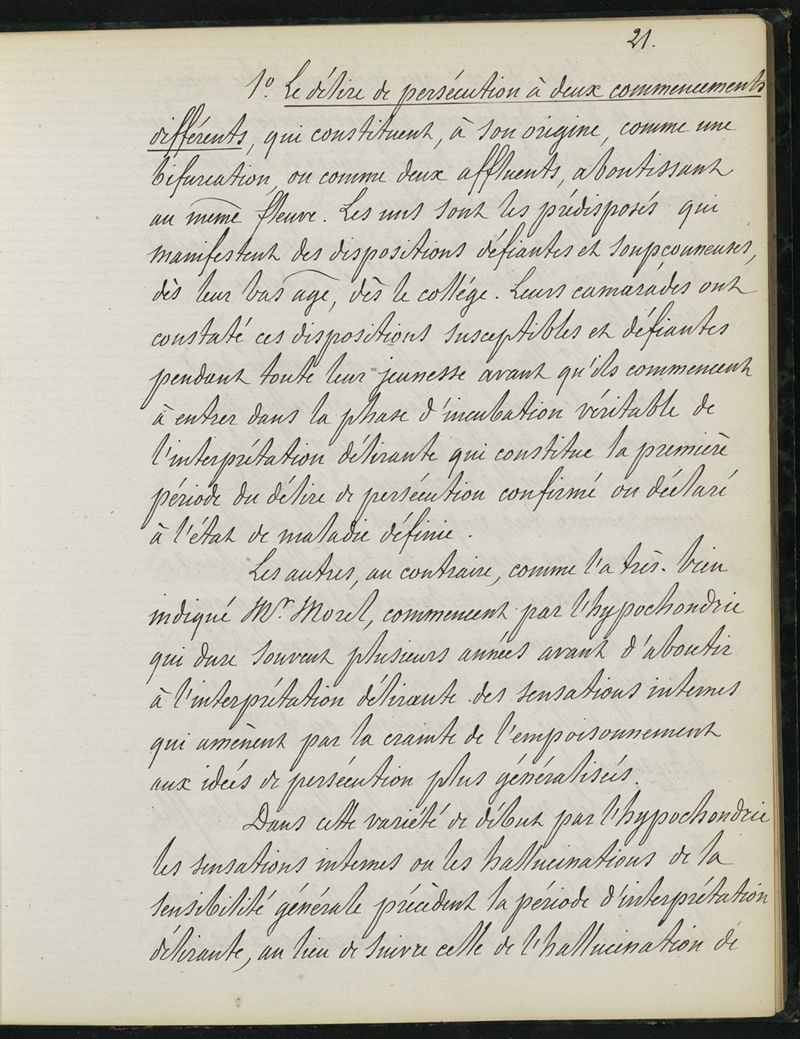 21.
1º. Le délire de persécution à deux commencements
différents, qui constituent, à son origine, comme une
bifurcation, ou comme deux affluents, aboutissant
au même fleuve. Les uns sont les prédisposés qui
manifestent des dispositions défiantes et soupçonneuses,
dès leur bas âge, dès le collége. Leurs camarades ont
constaté ces dispositions susceptibles et défiantes
pendant toute leur jeunesse avant qu'ils commencent
à entrer dans la phase d'incubation véritable de
l'interprétation délirante qui constitue la première
période du délire de persécution confirmé ou déclaré
à l'état de maladie définie.
Les autres, au contraire, comme l'a très-bien
indiqué Mr. Morel, commencent par l'hypochondrie
qui dure souvent plusieurs années avant d'aboutir
à l'interprétation délirante des sensations internes
qui amènent par la crainte de l'empoisonnement
aux idées de persécution plus généralisées.
Dans cette variété de début par l'hypochondrie
les sensations internes ou les hallucinations de la
sensibilité générale précèdent la période d'interprétation
délirante, au lieu de suivre celle de l'hallucination de